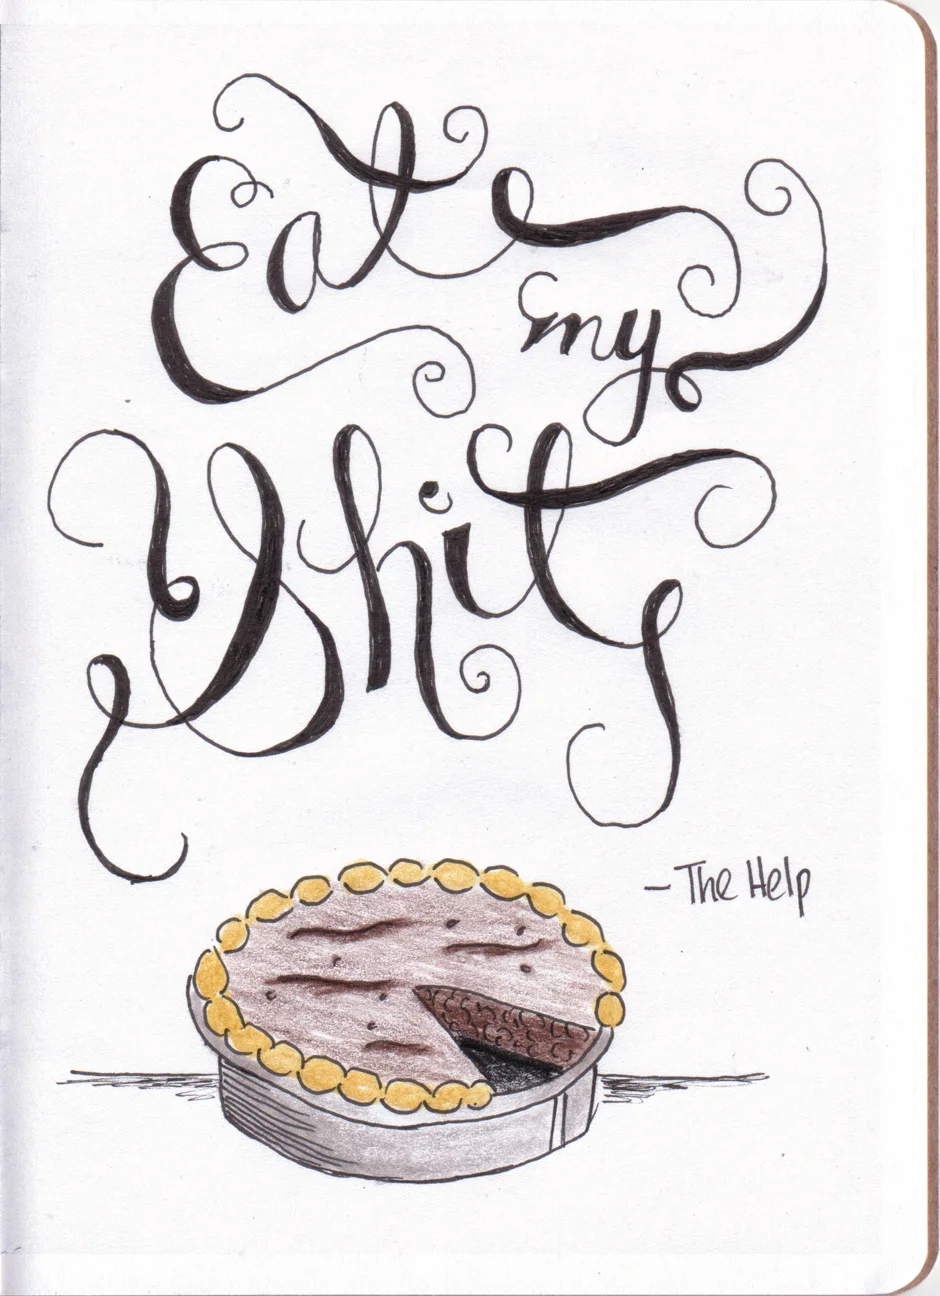 Eat
my
Shit
- The Help